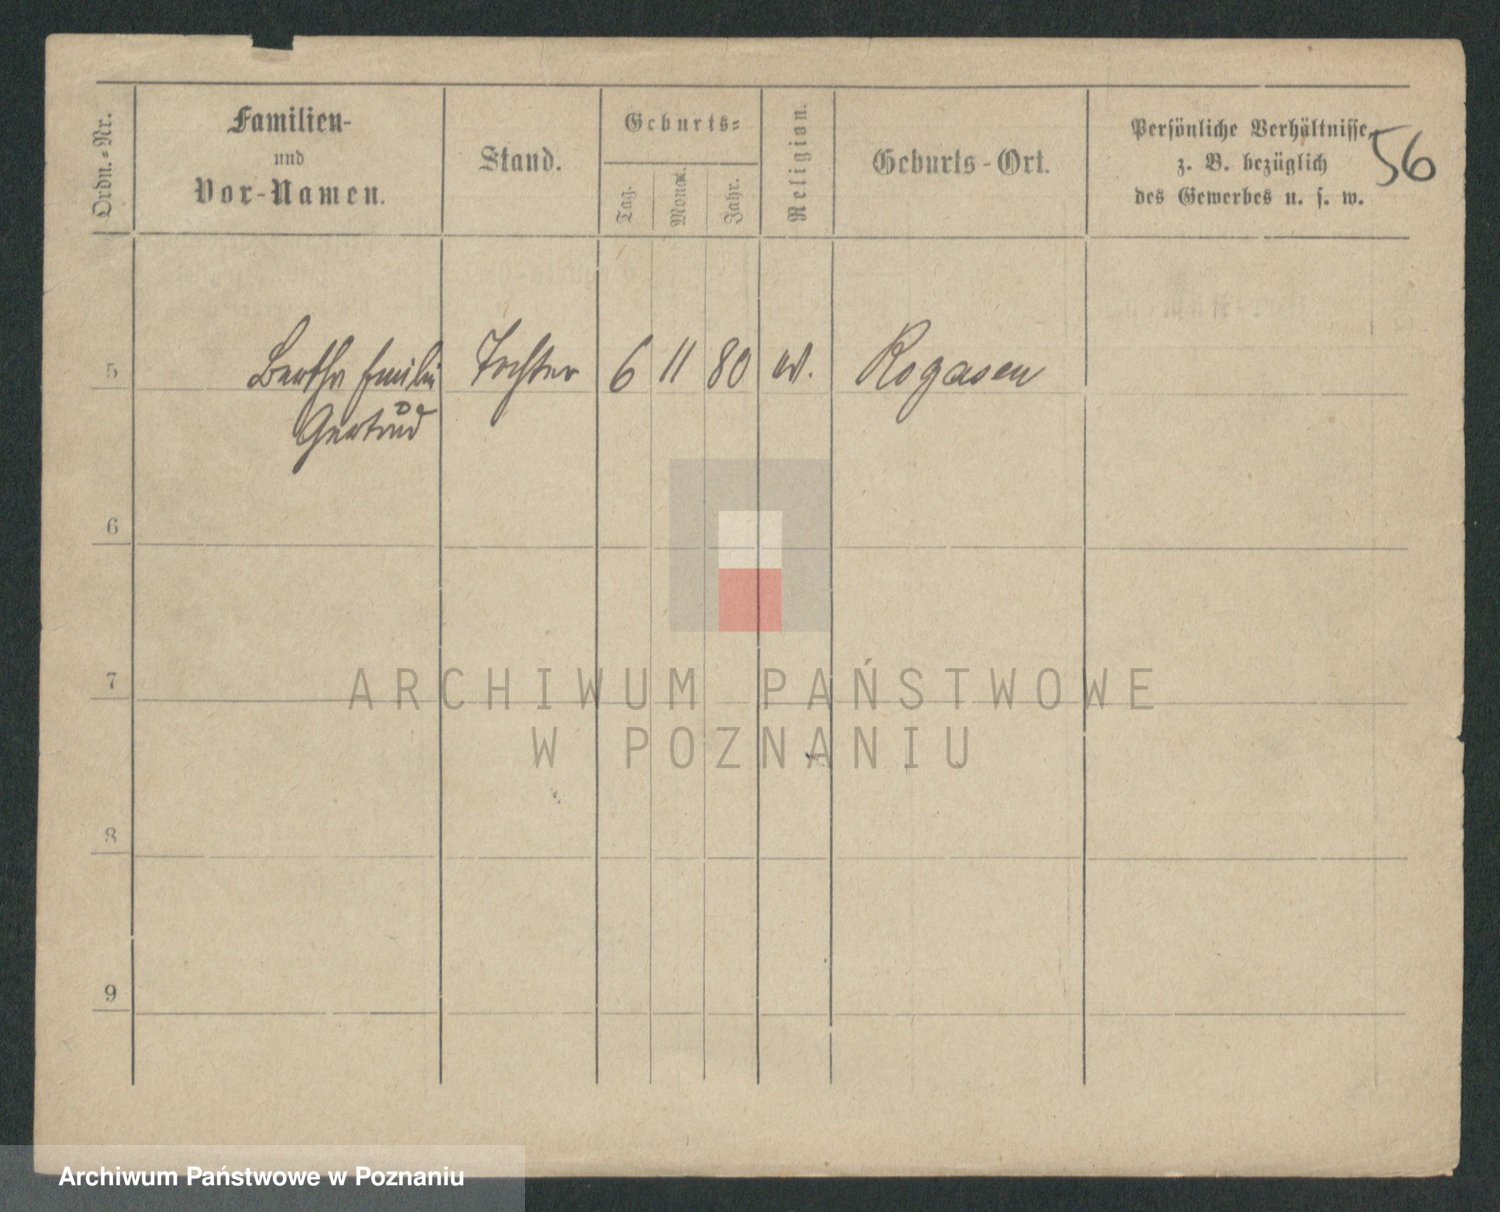 56
Ordn.-Nr.
Familien-
und
Vor-Namen.
Stand.
Geburts-
Tag.
Monat.
Jahr.
Religion.
Geburts-Ort.
Persönliche Verhältnisse,
z. B. bezüglich
des Gewerbes u. s. w.
5 Bertha Emilie Tochter 6 11 80 Rogasen
Gertrud
6
7
8
9
ARCHIWUM PAŃSTWOWE
W POZNANIU
Archiwum Państwowe w Poznaniu